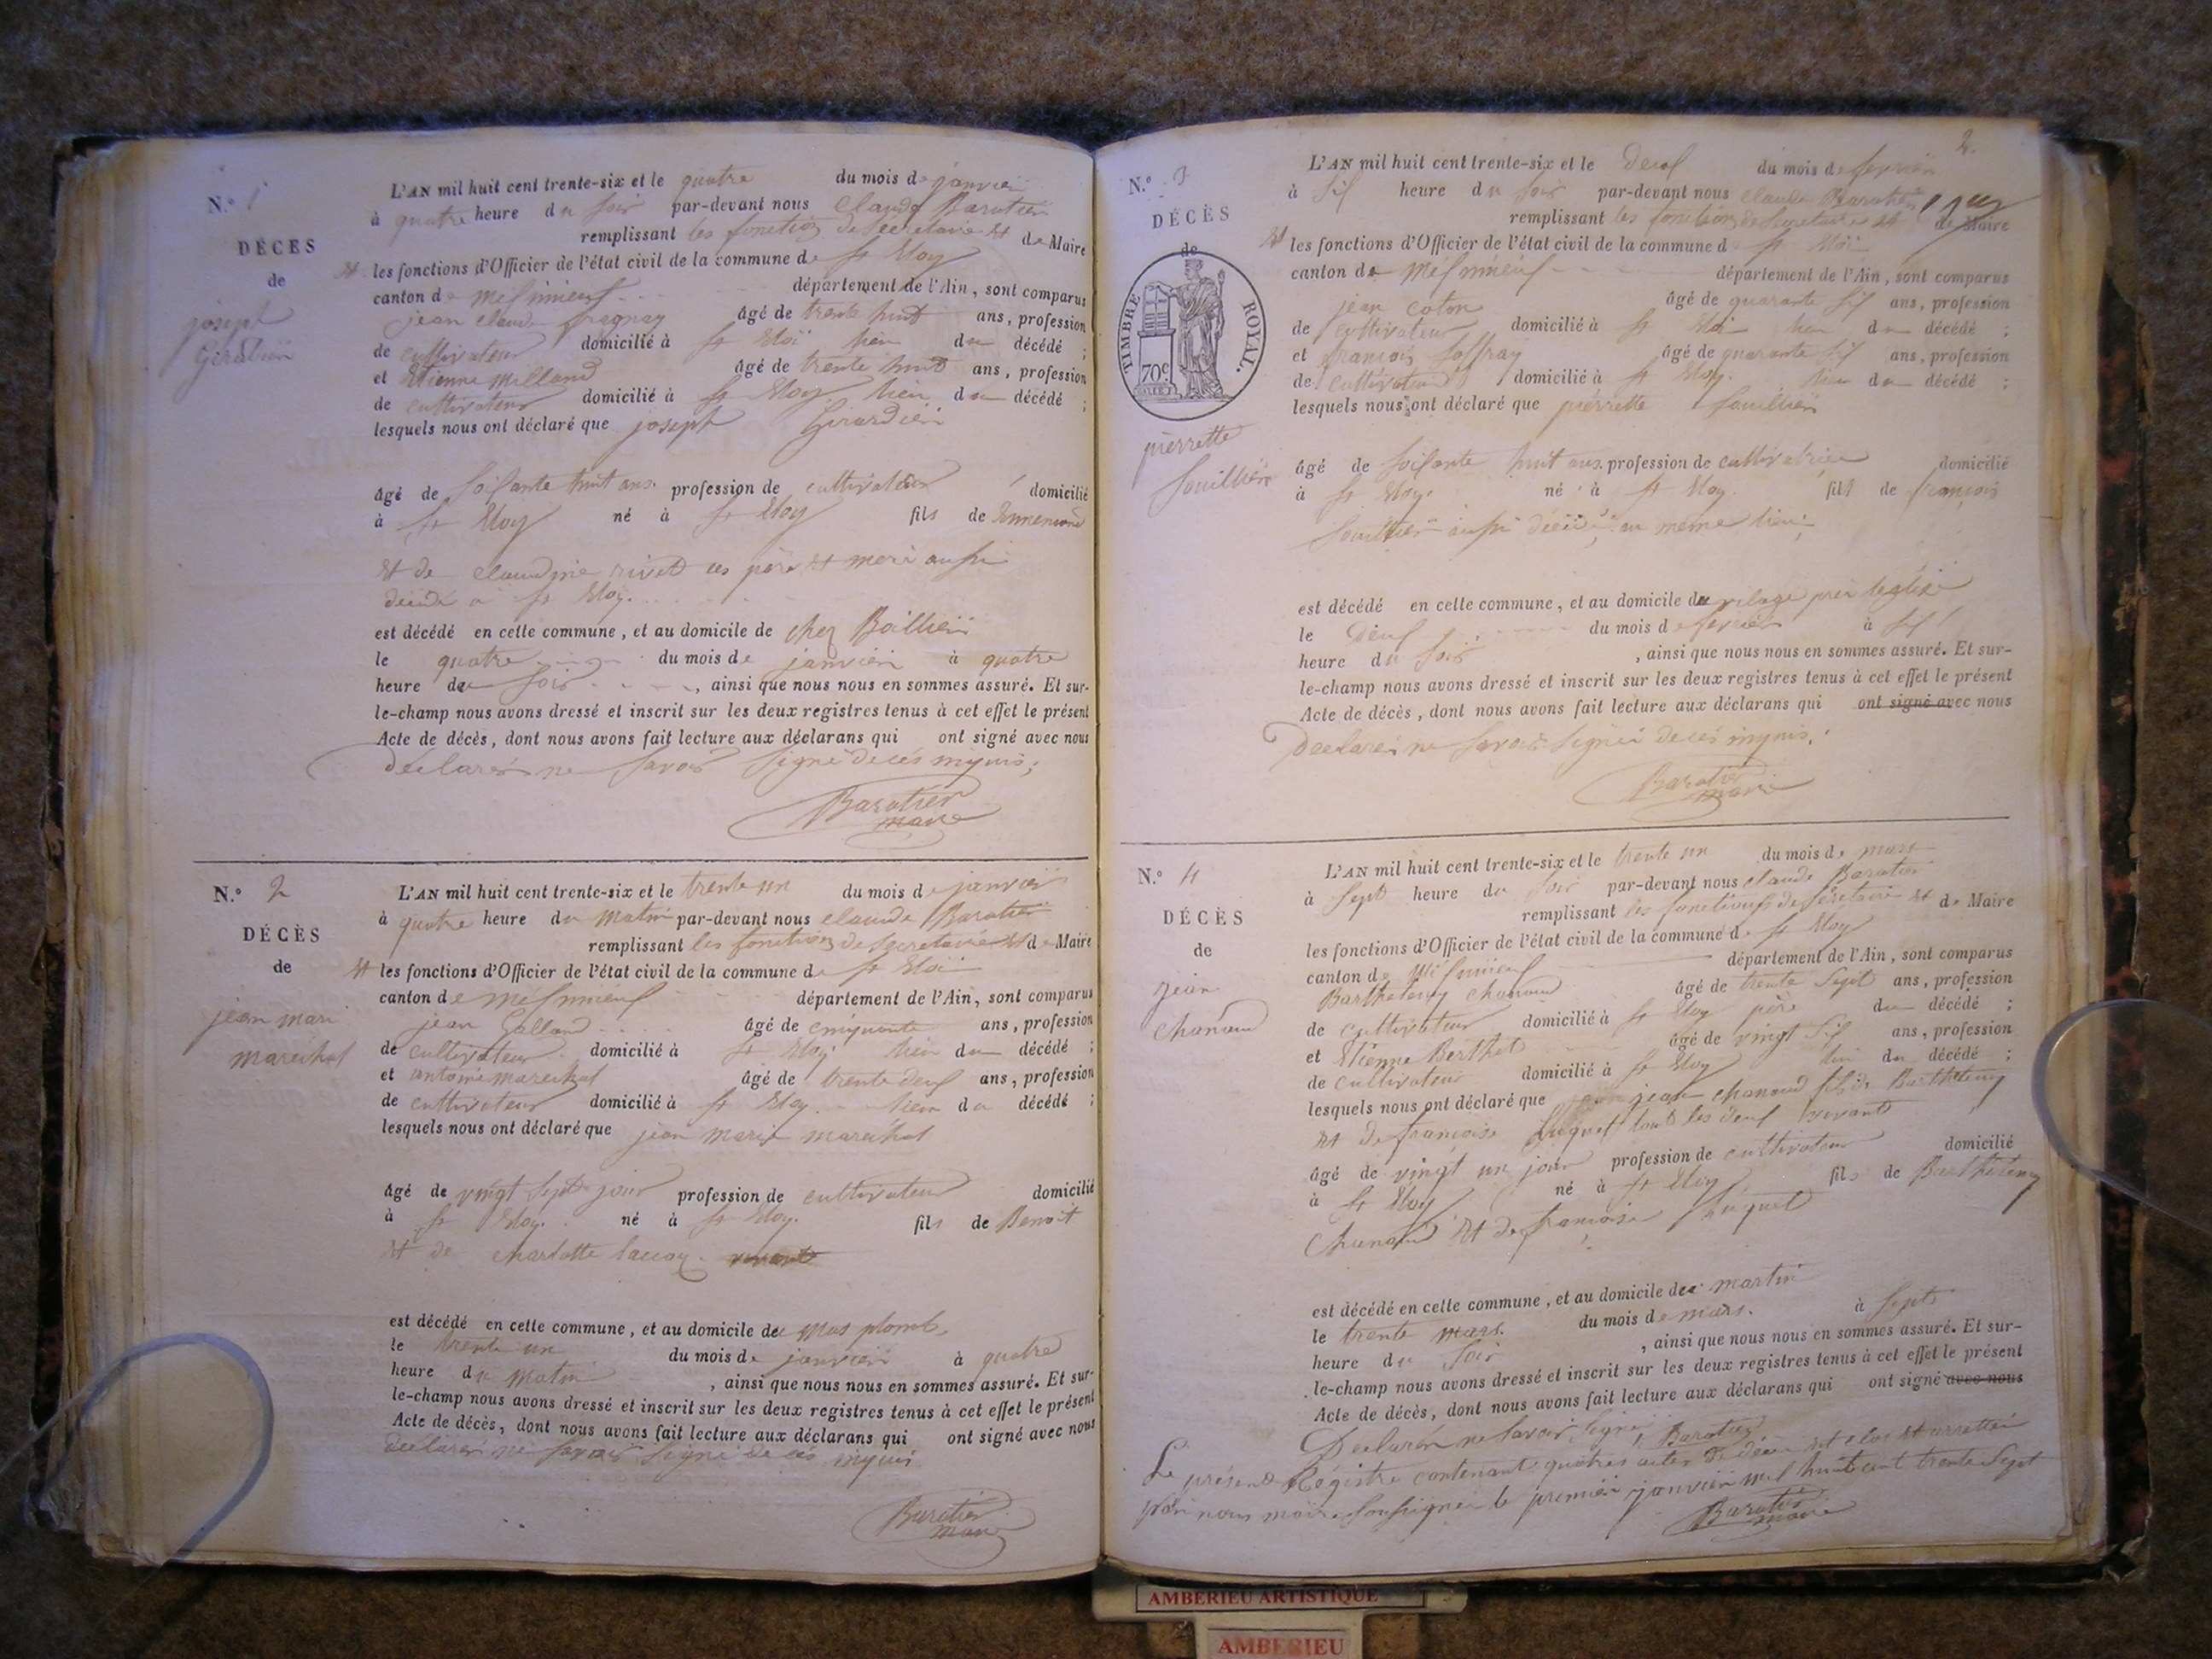 N.º 1
DÉCÈS
de
joseph
Girardien
L'AN mil huit cent trente-six et le quatre du mois de janvier
à quatre heure du soir par-devant nous Claude Baratier
remplissant les fonction de Secretaire et de Maire
et les fonctions d'Officier de l'état civil de la commune de st Eloy
canton de meximieux département de l'Ain, sont comparus
jean claude âgé de trente huit ans, profession
de cultivateur domicilié à st Eloi du décédé ;
et Etienne Milland âgé de trente huit ans, profession
de cultivateur domicilié à st Eloy du décédé ;
lesquels nous ont déclaré que joseph Girardien
âgé de soisante huit ans profession de cultivateur domicilié
à st Eloy né à st Eloy fils de
et de claudine rivet ses père et mere aussi
décédé à st Eloy.
est décédé en cette commune, et au domicile de chez
le quatre du mois de janvier à quatre
heure du soir, ainsi que nous nous en sommes assuré. Et sur-
le-champ nous avons dressé et inscrit sur les deux registres tenus à cet effet le présent
Acte de décès, dont nous avons fait lecture aux déclarans qui ont signé avec nous
déclarer ne savoir signé de ces inquis;
Baratier
maire
N.º 2
DÉCÈS
de
jean mari
marechal
L'AN mil huit cent trente-six et le trente un du mois de janvier
à quatre heure du matin par-devant nous claude Baratier
remplissant les fonction de Secretaire et de Maire
et les fonctions d'Officier de l'état civil de la commune de st Eloi
canton de meximieux département de l'Ain, sont comparus
jean Galland âgé de cinquante ans, profession
de cultivateur domicilié à st Eloy du décédé ;
et antoine marechal âgé de trente deux ans, profession
de cultivateur domicilié à st Eloy du décédé ;
lesquels nous ont déclaré que jean marie marechal
âgé de vingt sept jour profession de cultivateur domicilié
à st Eloy. né à st Eloy. fils de Benoit
et de charlotte
est décédé en cette commune, et au domicile de mas plomb
le trente un du mois de janvier à quatre
heure du matin, ainsi que nous nous en sommes assuré. Et sur-
le-champ nous avons dressé et inscrit sur les deux registres tenus à cet effet le présent
Acte de décès, dont nous avons fait lecture aux déclarans qui ont signé avec nous
déclarer ne savoir signé de ces inquis
Baratier
maire
2.
N.º 3
DÉCÈS
de
TIMBRE ROYAL.
70c
pierrette
Souillier
L'AN mil huit cent trente-six et le deux du mois de fevrier
à six heure du soir par-devant nous claude Baratier
remplissant les fonction de Secretaire et de Maire
et les fonctions d'Officier de l'état civil de la commune d st Eloi
canton de Meximieux département de l'Ain, sont comparus
jean coton âgé de quarante six ans, profession
de cultivateur domicilié à st Eloi du décédé ;
et francois Joffray âgé de quarante six ans, profession
de cultivateur domicilié à st Eloy. du décédé ;
lesquels nous ont déclaré que pierrette Souillier
âgé de soisante huit ans. profession de cultivatrice domicilié
à st Eloy. né à st Eloy. fils de françois
Souillier aussi décédé au meme lieu
est décédé en cette commune, et au domicile du vilage près leglise
le deux du mois de fevrier à six
heure du soir, ainsi que nous nous en sommes assuré. Et sur-
le-champ nous avons dressé et inscrit sur les deux registres tenus à cet effet le présent
Acte de décès, dont nous avons fait lecture aux déclarans qui ont signé avec nous
Declarer ne savoir signer de ces inquis.
Baratier
maire
N.º 4
DÉCÈS
de
jean
chanaud
L'AN mil huit cent trente-six et le trente un du mois de mars
à Sept heure du soir par-devant nous claude Baratier
remplissant les fonctions de Secretaire et de Maire
les fonctions d'Officier de l'état civil de la commune de st Eloy
canton de Meximieux département de l'Ain, sont comparus
Barthelemy chanaud âgé de trente sept ans, profession
de cultivateur domicilié à st Eloy père du décédé ;
et Etienne Berthet âgé de vingt six ans, profession
de cultivateur domicilié à st Eloy du décédé ;
lesquels nous ont déclaré que jean chanaud fils de Barthelemy
et de francoise huguet tout les deux vivant
âgé de vingt un jour profession de cultivateur domicilié
à st Eloy né à st Eloy fils de Barthelemy
Chanaud et de francoise huguet
est décédé en cette commune, et au domicile de martin
le trente mars. du mois de mars. à sept
heure du soir, ainsi que nous nous en sommes assuré. Et sur-
le-champ nous avons dressé et inscrit sur les deux registres tenus à cet effet le présent
Acte de décès, dont nous avons fait lecture aux déclarans qui ont signé avec nous
Declarer ne savoir signé, Baratier
Le présent Régistre contenant quatres actes de décès est clos et arretter
par nous maire soussigner le premier janvier mil huit cent trente Sept
Baratier
maire
AMBERIEU ARTISTIQUE
AMBERIEU